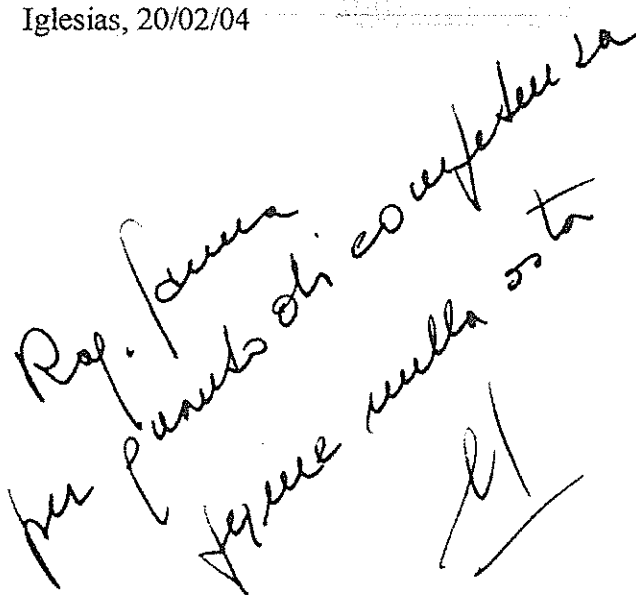 Iglesias, 20/02/04
Rag.
per quanto di competenza
nulla osta